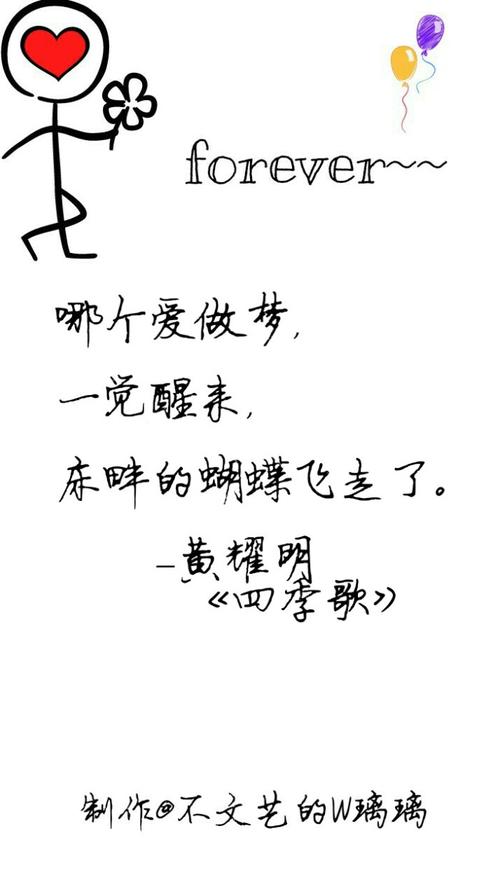 forever~~
哪个爱做梦,
一觉醒来,
床畔的蝴蝶飞走了。
-黄耀明
《四季歌》
制作@不文艺的W璃璃